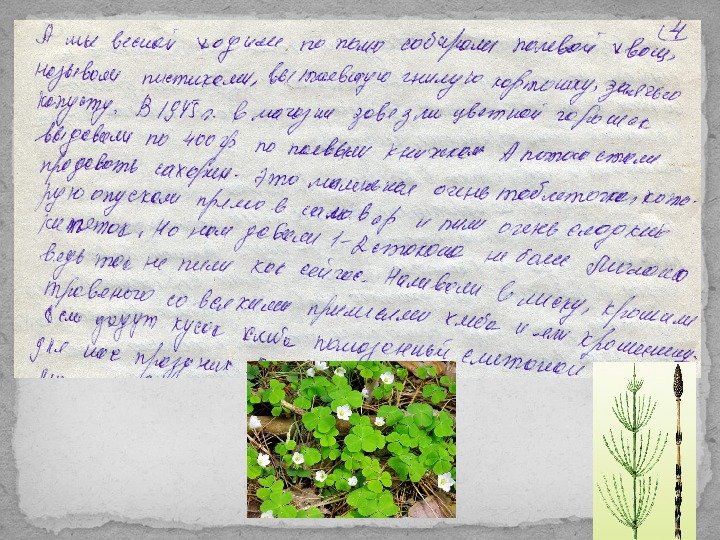 4
А мы весной ходили по полю собирали полевой хвощ,
называли пистиками, вытаевшую гнилую картошку, заячью
капусту. В 1945 г. в магазин завезли цветной горошек
выдавали по 400 гр по паевым книжкам А потом стали
продавать сахарин. Это маленькая очень таблеточка, кото-
рую опускали прямо в самовар и пили очень сладкий
кипяток. Но нам давали 1-2 стакана не более
ведь так не пили как сейчас. Наливали в миску, крошили
травяного со всякими примесями хлеба и ели крошенину.
Если дадут кусок хлеба помазанный сметаной
для нас праздник